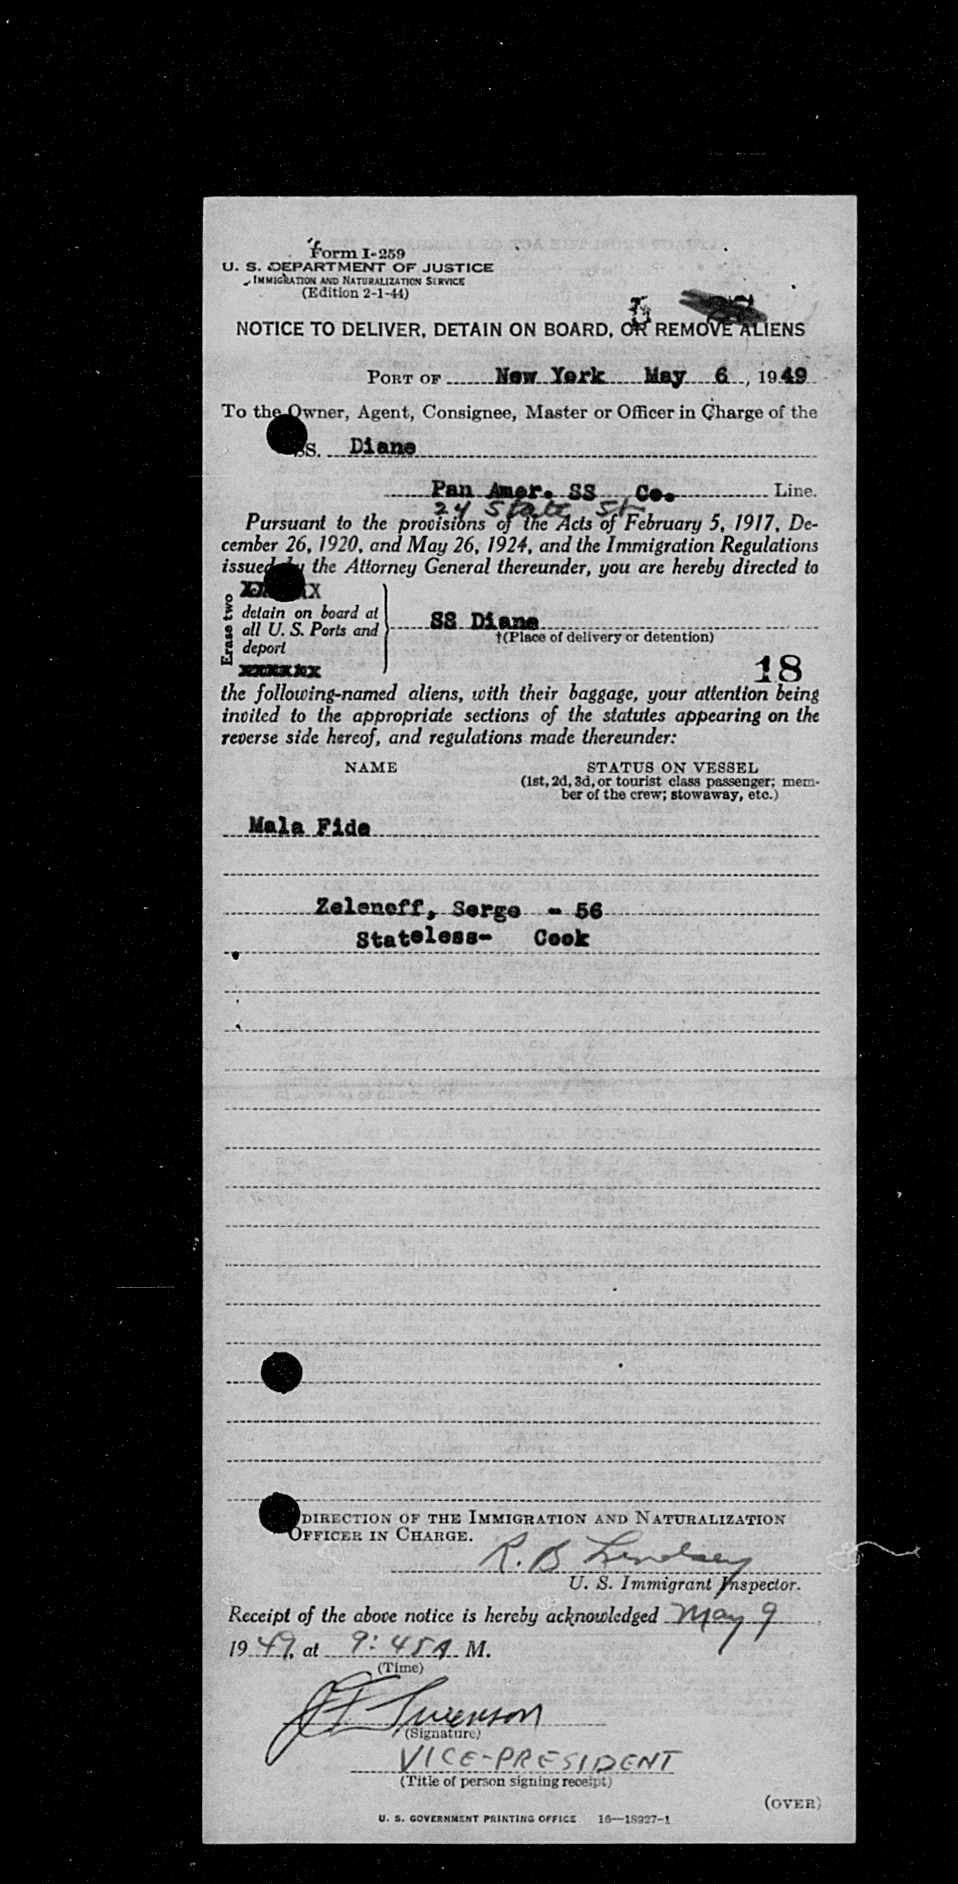 Form I-259
U. S. DEPARTMENT OF JUSTICE
IMMIGRATION AND NATURALIZATION SERVICE
(Edition 2-1-44)
NOTICE TO DELIVER, DETAIN ON BOARD, OR REMOVE ALIENS
PORT OF New York May 6, 1949
To the Owner, Agent, Consignee, Master or Officer in Charge of the
SS. Diane
Pan Amer. SS Co. Line.
24 State St
Pursuant to the provisions of the Acts of February 5, 1917, De-
cember 26, 1920, and May 26, 1924, and the Immigration Regulations
issued by the Attorney General thereunder, you are hereby directed to
Erase two
detain on board at
all U. S. Ports and
deport
SS Diane
†(Place of delivery or detention)
18
the following-named aliens, with their baggage, your attention being
invited to the appropriate sections of the statutes appearing on the
reverse side hereof, and regulations made thereunder:
NAME STATUS ON VESSEL
(1st, 2d, 3d, or tourist class passenger; mem-
ber of the crew; stowaway, etc.)
Mala Fide
Zelenoff, Serge - 56
Stateless- Cook
DIRECTION OF THE IMMIGRATION AND NATURALIZATION
OFFICER IN CHARGE.
R. B Lindsey
U. S. Immigrant Inspector.
Receipt of the above notice is hereby acknowledged May 9
1949, at 9:45 A M.
(Time)
JF Swenson
(Signature)
VICE-PRESIDENT
(Title of person signing receipt)
(OVER)
U. S. GOVERNMENT PRINTING OFFICE 16—18927-1